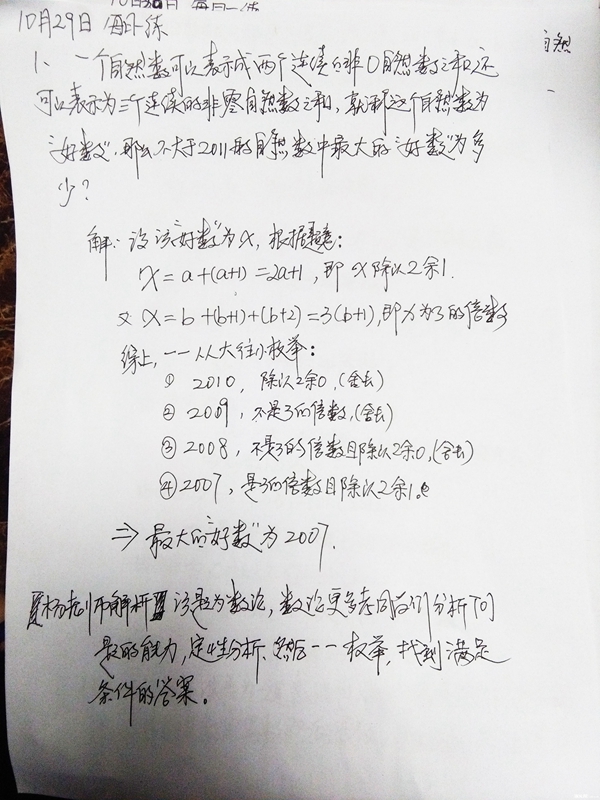 10月30日 每日一练
10月29日 每日一练
自然
1、一个自然数可以表示成两个连续的非0自然数之和,还
可以表示为三个连续的非零自然数之和,就称这个自然数为
"好数",那么不大于2011的自然数中最大的"好数"为多
少?
解:设该"好数"为x,根据题意:
x=a+(a+1)=2a+1,即x除以2余1.
又x=b+(b+1)+(b+2)=3(b+1),即x为3的倍数
综上,一一从大往小枚举:
① 2010,除以2余0,(舍去)
② 2009,不是3的倍数,(舍去)
③ 2008,不是3的倍数且除以2余0,(舍去)
④ 2007,是3的倍数且除以2余1.
⇒ 最大的"好数"为2007.
【杨老师解析】该题为数论,数论更多考同学们分析问
题的能力,定性分析、然后一一枚举,找到满足
条件的答案。